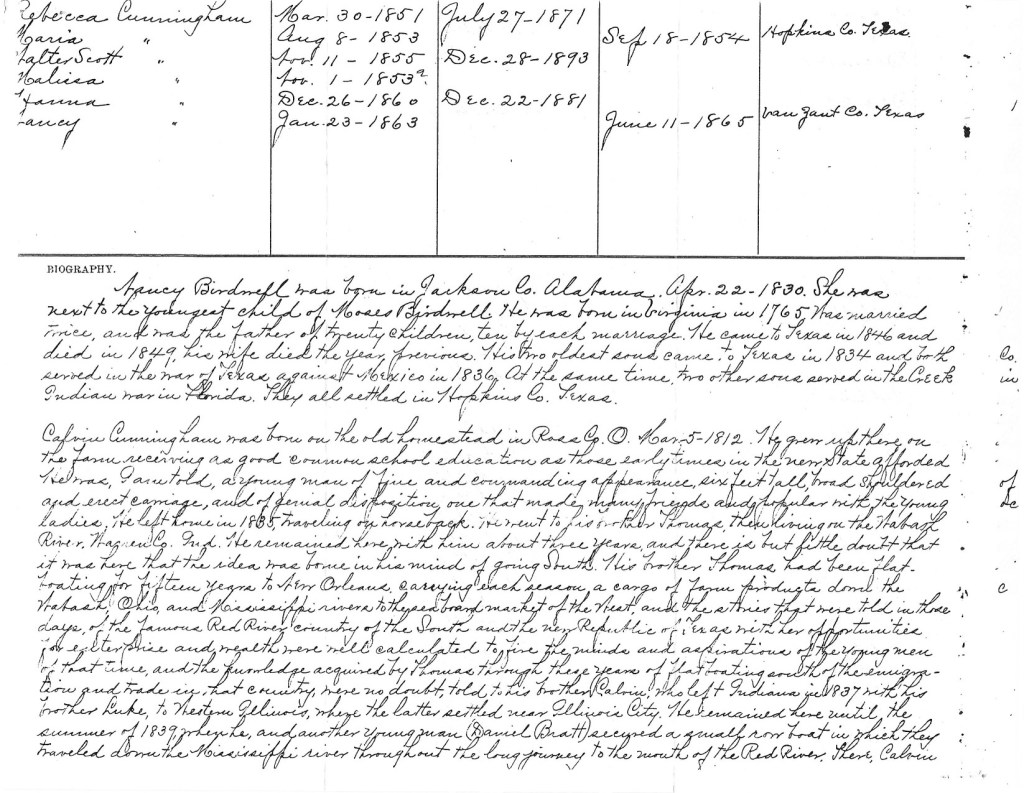 Rebecca Cunningham Mar. 30-1851 July 27-1871
Maria " Aug 8-1853 Sep 18-1854 Hopkins Co. Texas
Walter Scott " Nov. 11-1855 Dec. 28-1893
Malissa " Nov. 1-185
" Dec. 26-1860 Dec. 22-1881
Nancy " Jan. 23-1863 June 11-1865 Van Zant Co. Texas
BIOGRAPHY.
Nancy Birdwell was born in Jackson Co. Alabama. Apr. 22-1830. She was
next to the youngest child of Moses Birdwell. He was born in Virginia in 1765. Was married
twice, and was the father of twenty children, ten by each marriage. He came to Texas in 1846 and
died in 1849, his wife died the year previous. His two oldest sons came to Texas in 1834 and both
served in the war of Texas against Mexico in 1836. At the same time, two other sons served in the Creek
Indian war in Florida. They all settled in Hopkins Co. Texas.
Calvin Cunningham was born on the old homestead in Ross Co. O. Mar. 5-1812. He grew up there on
the farm receiving as good common school education as those early times in the new State afforded
He was, I am told, a young man of fine and commanding appearance, six feet tall, broad shouldered
and erect carriage, and of genial disposition, one that made many friends and popular with the young
ladies. He left home in 1835, traveling on horseback. He went to his brother Thomas, then living on the Wabash
River, Warren Co. Ind. He remained here with him about three years, and there is but little doubt that
it was here that the idea was borne in his mind of going South. His brother Thomas, had been flat-
boating for fifteen years to New Orleans, carrying each season, a cargo of farm products down the
Wabash, Ohio, and Mississippi rivers to the seaboard market of the West, and the stories that were told in those
days, of the famous Red River country of the South and the new Republic of Texas with her opportunities
for enterprise and wealth were well calculated to fire the minds and aspirations of the young men
of that time, and the knowledge acquired by Thomas through these years of flatboating south of the emigra-
tion and trade in that country, were no doubt, told to his brother Calvin, who left Indiana in 1837 with his
brother Luke, to Western Illinois, where the latter settled near Illinois City. He remained here until the
summer of 1839, when he, and another young man (Daniel Bratt) secured a small row boat in which they
traveled down the Mississippi river throughout the long journey to the mouth of the Red River. There, Calvin
Co.
in
of
c